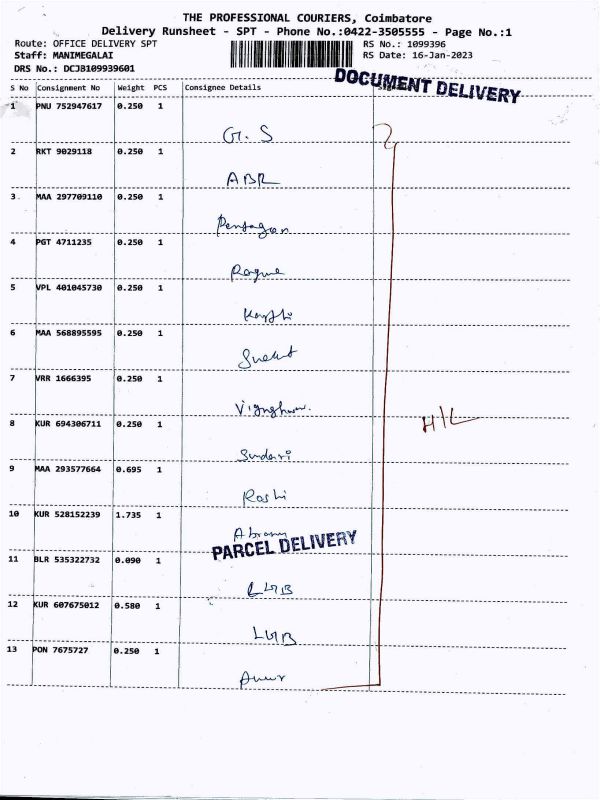 THE PROFESSIONAL COURIERS, Coimbatore
Delivery Runsheet - SPT - Phone No.:0422-3505555 - Page No.:1
Route: OFFICE DELIVERY SPT
RS No.: 1099396
Staff: MANIMEGALAI
RS Date: 16-Jan-2023
DRS No.: DCJ8109939601
DOCUMENT DELIVERY
S No Consignment No Weight PCS Consignee Details
1 PNU 752947617 0.250 1
G. S
2 RKT 9029118 0.250 1
ABR
3 MAA 297709110 0.250 1
Pentagon
4 PGT 4711235 0.250 1
5 VPL 401045730 0.250 1
6 MAA 568895595 0.250 1
7 VRR 1666395 0.250 1
8 KUR 694306711 0.250 1
H/L
Sundari
9 MAA 293577664 0.695 1
Roshi
10 KUR 528152239 1.735 1
PARCEL DELIVERY
11 BLR 535322732 0.090 1
12 KUR 607675012 0.580 1
13 PON 7675727 0.250 1